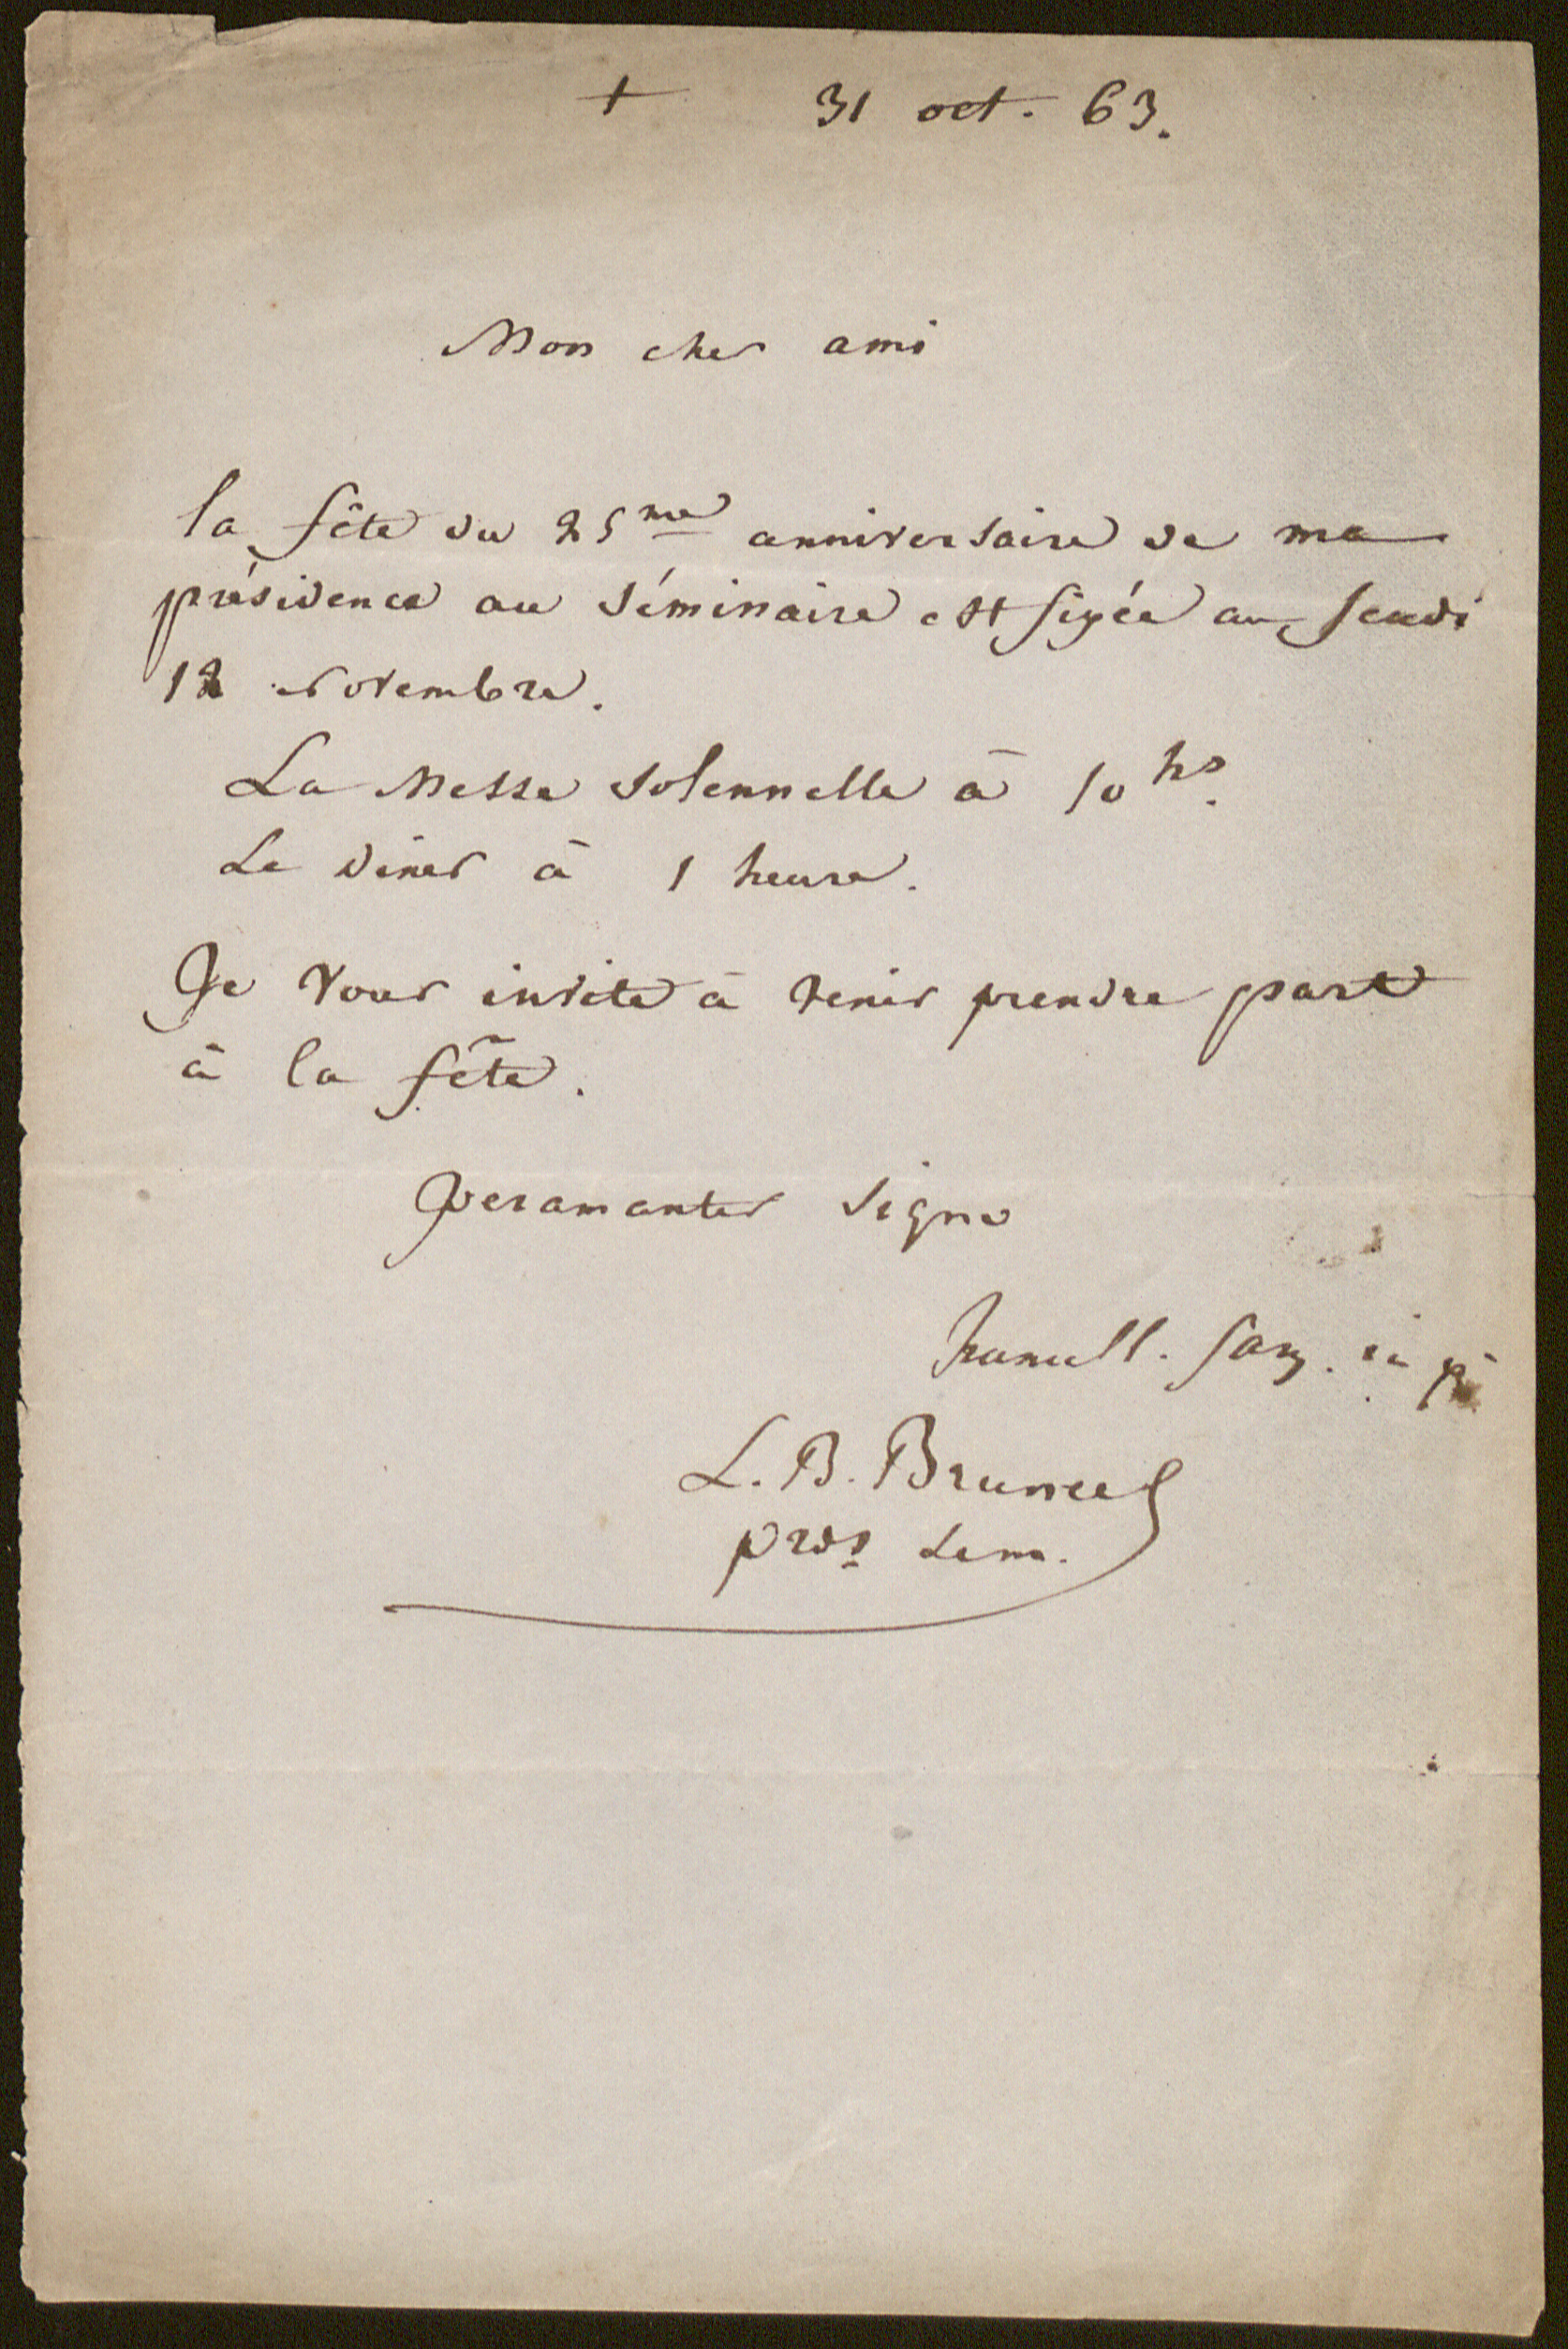 + 31 oct. 63.
Mon cher ami
la fête du 25me anniversaire de ma
présidence au séminaire est fixée au jeudi
12 Novembre.
La Messe solennelle à 10 hs.
Le diner à 1 heure.
Je vous invite à venir prendre part
à la fête.
Peramanter signo
humill. fam. in
L. B. Bruneel
prds sem.